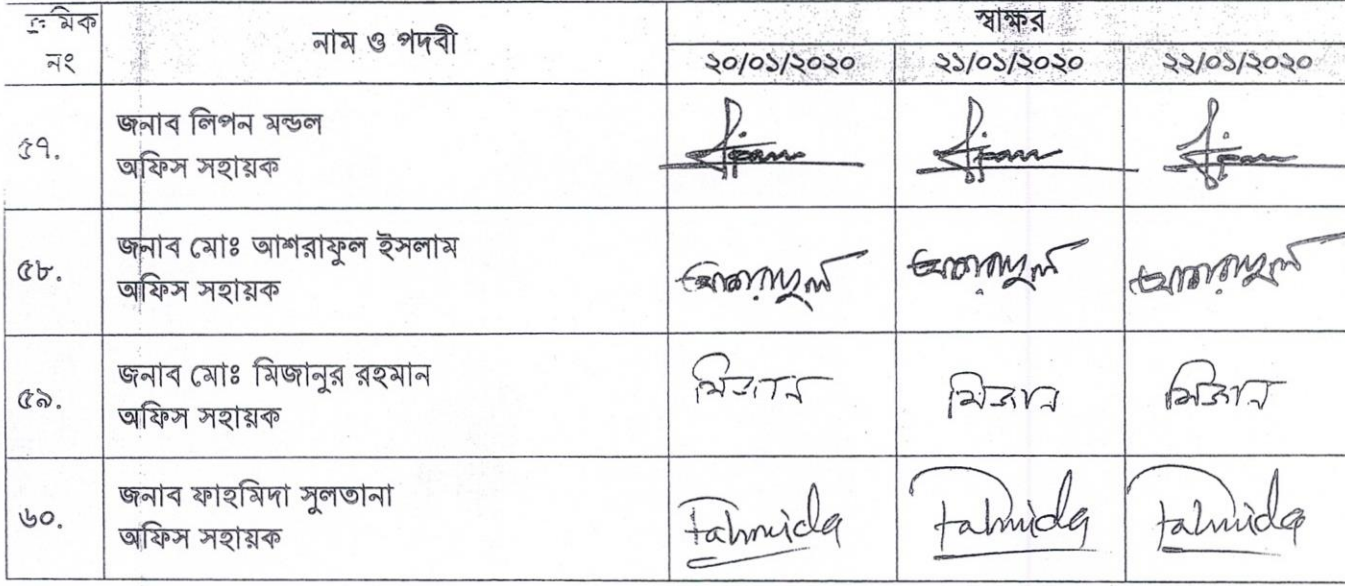 ক্রমিক নং নাম ও পদবী স্বাক্ষর
২০/০১/২০২০ ২১/০১/২০২০ ২২/০১/২০২০
৫৭.
জনাব লিপন মন্ডল
অফিস সহায়ক
৫৮.
জনাব মোঃ আশরাফুল ইসলাম
অফিস সহায়ক
আশরাফুল আশরাফুল আশরাফুল
৫৯.
জনাব মোঃ মিজানুর রহমান
অফিস সহায়ক
মিজান মিজান মিজান
৬০.
জনাব ফাহমিদা সুলতানা
অফিস সহায়ক
Fahmida Fahmida Fahmida